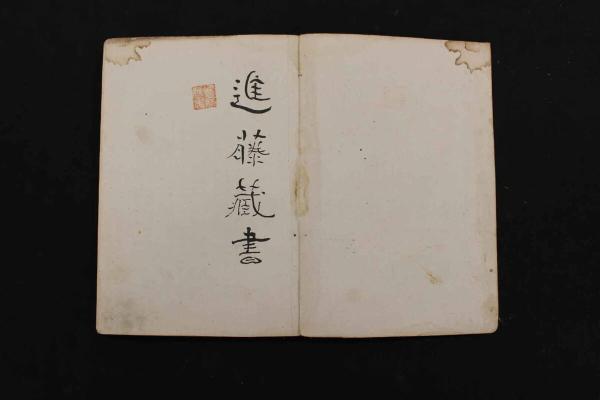 進藤藏書